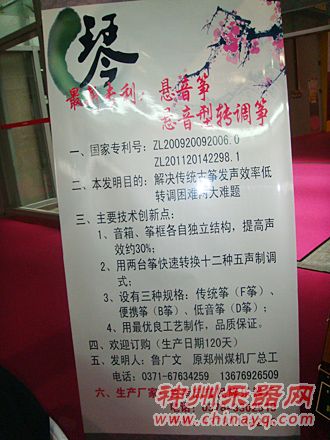 琴
最新专利：悬音筝
悬音型转调筝
一、国家专利号：ZL200920092006.0
ZL201120142298.1
二、本发明目的：解决传统古筝发声效率低
转调困难两大难题
三、主要技术创新点：
1、音箱、筝框各自独立结构，提高声
效约30%；
2、用两台筝快速转换十二种五声制调
式；
3、设有三种规格：传统筝（F筝）、
便携筝（B筝）、低音筝（D筝）；
4、用最优良工艺制作，品质保证。
四、欢迎订购（生产日期120天）
五、发明人：鲁广文 原郑州煤机厂总工
电话：0371-67634259 13676926509
六、生产厂家
神州乐器网
www.chinayq.com